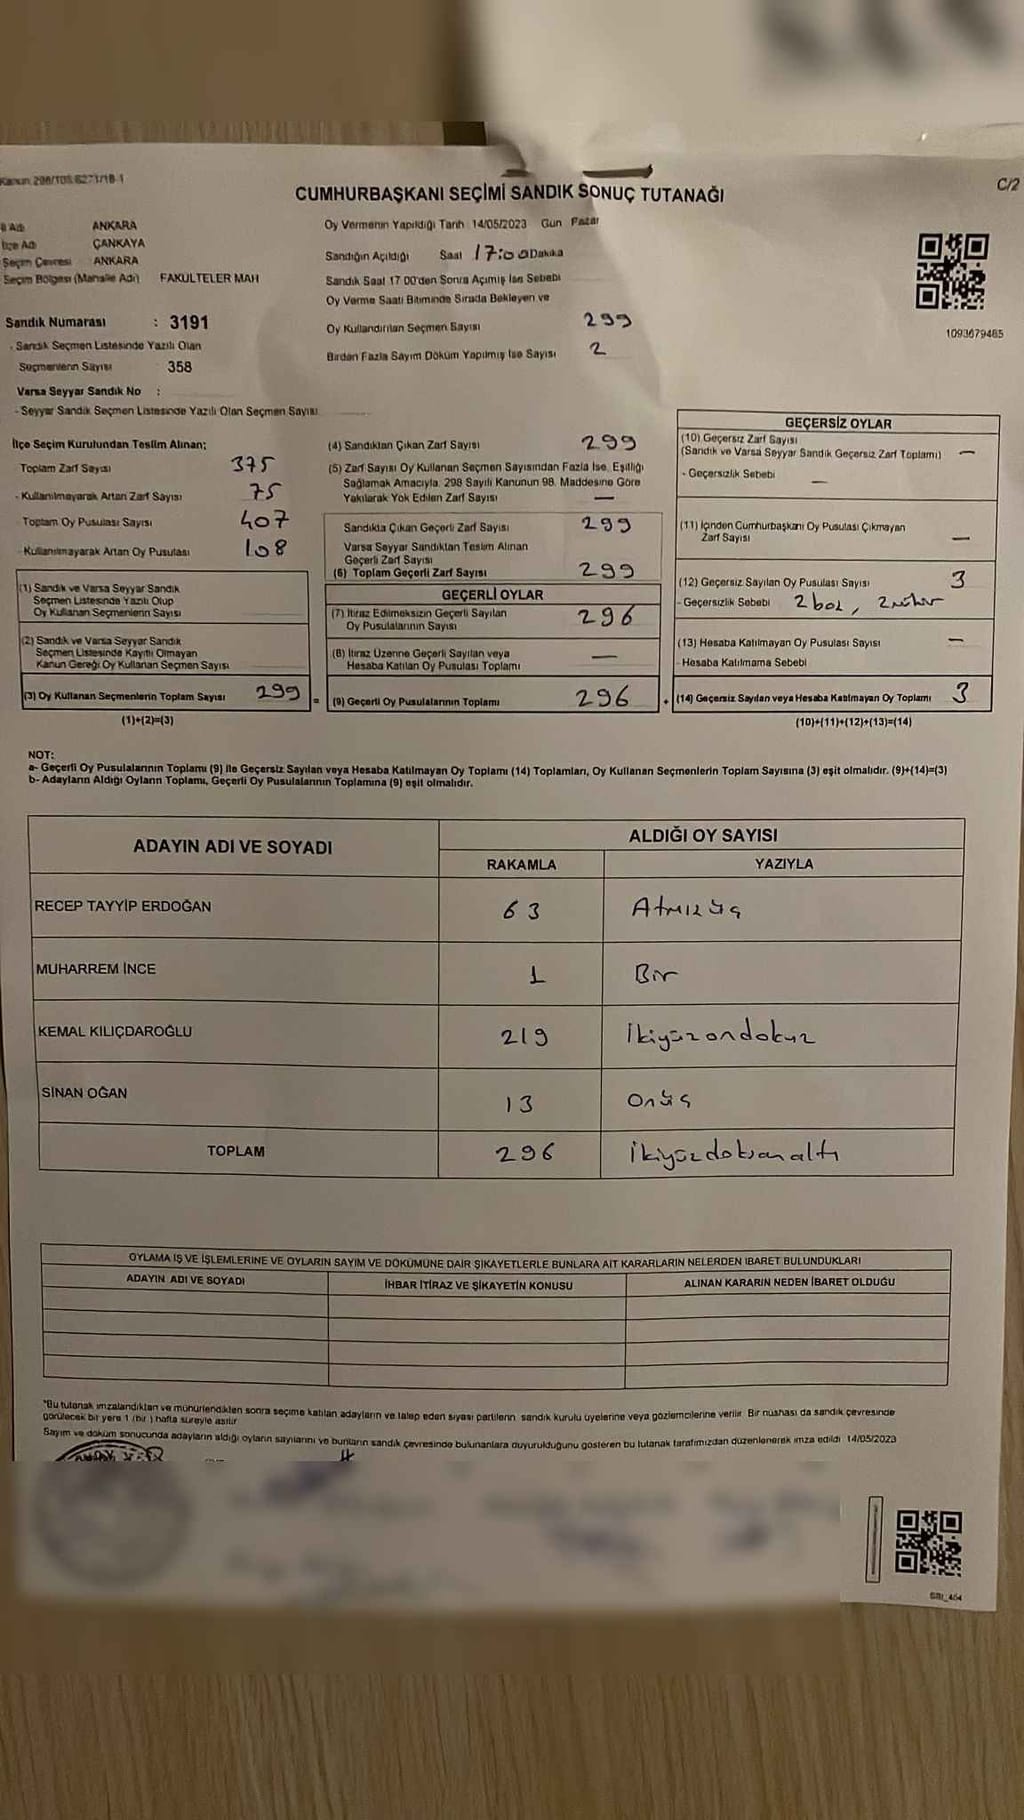 Kanun: 298/105; 6271/18-1
C/2
CUMHURBAŞKANI SEÇİMİ SANDIK SONUÇ TUTANAĞI
İl Adı ANKARA
İlçe Adı ÇANKAYA
Seçim Çevresi ANKARA
Seçim Bölgesi (Mahalle Adı) FAKÜLTELER MAH
Sandık Numarası : 3191
- Sandık Seçmen Listesinde Yazılı Olan
Seçmenlerin Sayısı 358
Varsa Seyyar Sandık No :
- Seyyar Sandık Seçmen Listesinde Yazılı Olan Seçmen Sayısı
Oy Vermenin Yapıldığı Tarih 14/05/2023 Gün Pazar
Sandığın Açıldığı Saat 17:00 Dakika
Sandık Saat 17 00'den Sonra Açılmış İse Sebebi
Oy Verme Saati Bitiminde Sırada Bekleyen ve
Oy Kullandırılan Seçmen Sayısı 299
Birden Fazla Sayım Döküm Yapılmış İse Sayısı 2
1093679485
İlçe Seçim Kurulundan Teslim Alınan;
Toplam Zarf Sayısı 375
- Kullanılmayarak Artan Zarf Sayısı 75
- Toplam Oy Pusulası Sayısı 407
- Kullanılmayarak Artan Oy Pusulası 108
(1) Sandık ve Varsa Seyyar Sandık
Seçmen Listesinde Yazılı Olup
Oy Kullanan Seçmenlerin Sayısı
(2) Sandık ve Varsa Seyyar Sandık
Seçmen Listesinde Kayıtlı Olmayan
Kanun Gereği Oy Kullanan Seçmen Sayısı
(3) Oy Kullanan Seçmenlerin Toplam Sayısı 299
(1)+(2)=(3)
(4) Sandıktan Çıkan Zarf Sayısı 299
(5) Zarf Sayısı Oy Kullanan Seçmen Sayısından Fazla İse, Eşitliği
Sağlamak Amacıyla, 298 Sayılı Kanunun 98. Maddesine Göre
Yakılarak Yok Edilen Zarf Sayısı —
Sandıkta Çıkan Geçerli Zarf Sayısı 299
Varsa Seyyar Sandıktan Teslim Alınan
Geçerli Zarf Sayısı
(6) Toplam Geçerli Zarf Sayısı 299
GEÇERLİ OYLAR
(7) İtiraz Edilmeksizin Geçerli Sayılan
Oy Pusulalarının Sayısı 296
(8) İtiraz Üzerine Geçerli Sayılan veya
Hesaba Katılan Oy Pusulası Toplamı —
= (9) Geçerli Oy Pusulalarının Toplamı 296
GEÇERSİZ OYLAR
(10) Geçersiz Zarf Sayısı
(Sandık ve Varsa Seyyar Sandık Geçersiz Zarf Toplamı) —
- Geçersizlik Sebebi —
(11) İçinden Cumhurbaşkanı Oy Pusulası Çıkmayan
Zarf Sayısı —
(12) Geçersiz Sayılan Oy Pusulası Sayısı 3
- Geçersizlik Sebebi 2 boş, 2 mühür
(13) Hesaba Katılmayan Oy Pusulası Sayısı —
- Hesaba Katılmama Sebebi
+ (14) Geçersiz Sayılan veya Hesaba Katılmayan Oy Toplamı 3
(10)+(11)+(12)+(13)=(14)
NOT:
a- Geçerli Oy Pusulalarının Toplamı (9) ile Geçersiz Sayılan veya Hesaba Katılmayan Oy Toplamı (14) Toplamları, Oy Kullanan Seçmenlerin Toplam Sayısına (3) eşit olmalıdır. (9)+(14)=(3)
b- Adayların Aldığı Oyların Toplamı, Geçerli Oy Pusulalarının Toplamına (9) eşit olmalıdır.
ADAYIN ADI VE SOYADI
ALDIĞI OY SAYISI
RAKAMLA YAZIYLA
RECEP TAYYİP ERDOĞAN 63 Atmızüç
MUHARREM İNCE 1 Bir
KEMAL KILIÇDAROĞLU 219 İkiyüzondokuz
SİNAN OĞAN 13 Onüç
TOPLAM 296 İkiyüzdoksanaltı
OYLAMA İŞ VE İŞLEMLERİNE VE OYLARIN SAYIM VE DÖKÜMÜNE DAİR ŞİKAYETLERLE BUNLARA AİT KARARLARIN NELERDEN İBARET BULUNDUKLARI
ADAYIN ADI VE SOYADI İHBAR İTİRAZ VE ŞİKAYETİN KONUSU ALINAN KARARIN NEDEN İBARET OLDUĞU
*Bu tutanak imzalandıktan ve mühürlendikten sonra seçime katılan adayların ve talep eden siyasi partilerin sandık kurulu üyelerine veya gözlemcilerine verilir. Bir nüshası da sandık çevresinde
görülecek bir yere 1 (bir) hafta süreyle asılır
Sayım ve döküm sonucunda adayların aldığı oyların sayılarını ve bunların sandık çevresinde bulunanlara duyurulduğunu gösteren bu tutanak tarafımızdan düzenlenerek imza edildi 14/05/2023